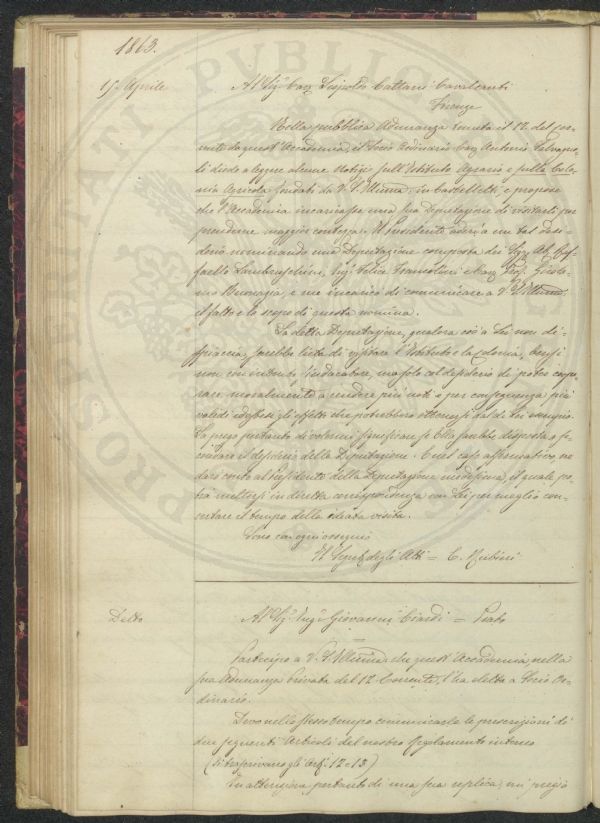 1863.
15 Aprile
Al Sig.r Cav. Leopoldo Cattani Cavalcanti
Firenze
Nella pubblica Adunanza tenuta il 12 del cor-
rente da quest'Accademia, il Socio Ordinario Cav. Antonio Salvagno-
li diede a legger alcune Notizie sull'Istituto Agrario e sulla Colo-
nia Agricola fondati da V. S. Ill.ma in Castelletti, e propose
che l'Accademia incaricasse una sua Deputazione di visitarli per
prenderne maggior contezza. Il Presidente aderì a un tal desi-
derio nominando una Deputazione composta dei Sigg. Ab. Raf-
faello Lambruschini, Ing. Felice Francolini e Cav. Prof. Girola-
mo Buonazia, e me incaricò di comunicare a V. S. Ill.ma
il fatto e lo scopo di questa nomina.
La detta Deputazione, qualora ciò a Lei non di-
spiaccia, sarebbe lieta di visitare l'Istituto e la Colonia, bensì
non con intento sindacatore, ma solo col desiderio di poter coope-
rare moralmente a rendere più noti e per conseguenza più
validi ed estesi gli effetti che potrebbero ottenersi dal di Lei esempio.
La prego pertanto di volermi significare se Ella sarebbe disposta a se-
condare il desiderio della Deputazione. E nel caso affermativo, ne
darò conto al Presidente della Deputazione medesima, il quale po-
trà mettersi in diretta corrispondenza con Lei per meglio con-
certare il tempo della ideata visita.
Sono con ogni ossequio
Il Segret. degli Atti = C. Rubini
Detto
Al Sig.r Ing.r Giovanni Ciardi = Prato
Partecipo a V. S. Ill.ma che quest'Accademia, nella
sua Adunanza Privata del 12 Corrente, l'ha eletta a Socio Or-
dinario.
Devo nello stesso tempo comunicarle le prescrizioni di
due seguenti Articoli del nostro Regolamento interno
(si trascrivano gli Art.i 12 e 13)
In attenzione pertanto di una sua replica, mi pregio